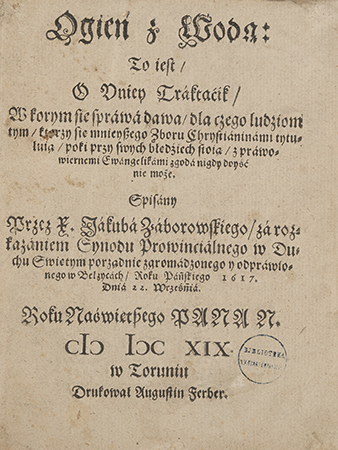 Ogień z Wodą:
To iest /
O Vniey Tráktaćik /
W korym się spráwá dawa / dla czego ludziom
tym / ktorzy się mnieyszego Zboru Chrystiáninámi tytu-
luią / poki przy swych błędziech stoią / z práwo-
wiernemi Ewángelikámi zgodá nigdy doyść
nie może.
Spisány
Przez X. Jákubá Záborowskiego / zá roz-
kazániem Synodu Prowinciálnego w Du-
chu Swiętym porządnie zgromádzonego y odpráwio-
nego w Bełzycách / Roku Páńskiego 1617.
Dniá 22. Wrześniá.
Roku Naświętszego PANA N.
CIƆ IƆC XIX.
w Toruniu
Drukował Augustin Ferber.
BIBLIOTEKA